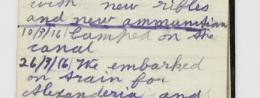 with new rifles
and new ammunition
10/9/16 Camped on the
canal
26/9/16 We embarked
on train for
Alexanderia and